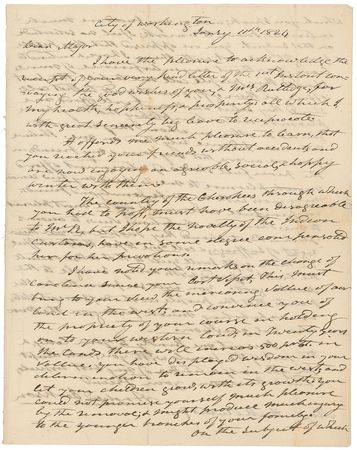 City of Washington
Janry 10th 1824
Dear Major
I have the pleasure to acknowledge the
receipt of your very kind letter of the 1st Instant con-
veying the good wishes of you, & Mrs Rutledge, for
my health, happiness, & prosperity, all which I
with great sincerity beg leave to reciprocate
It affords me much pleasure to learn, that
you reached your friends without accident, and
are now enjoying an agreeable, social, & happy
winter with them.
The country of the Cherokees through which
you had to pass, must have been disagreeable
to Mrs R. but I hope the novelty of the Indian
customs, have in some degree compensated
her for her privations
I have noted your remark on the change of
Carolina since your last visit, this must
bring to your view, the increasing value of our
land in the west, and convince you of
the propriety of your course in holding
on to your western lands, in twenty years
the lands, there will increase 500 pr ct. in
value, you have displayed wisdom in your
determination to remain in the west, and
let your children grow, with its growth, you
could not promise yourself much pleasure
by the removal, & might produce much injury
to the younger branches of your family.
On the subject of which